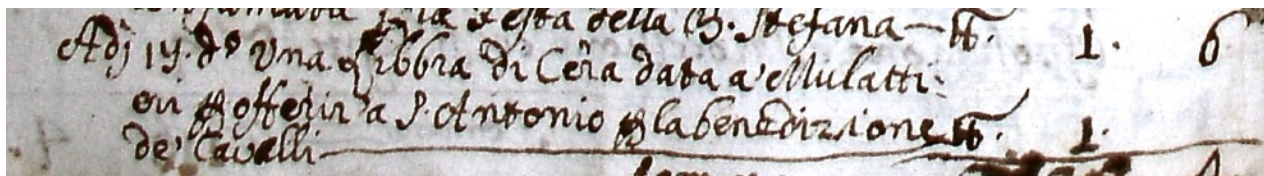 la Festa della B. Stefana — ℔. 1. 6
Adj 17. dº Una Libbra di Cera data a' Mulatti:
eri ꝑ offerir' a S. Antonio ꝑ la benedizione ℔. 1.
de' Cavalli